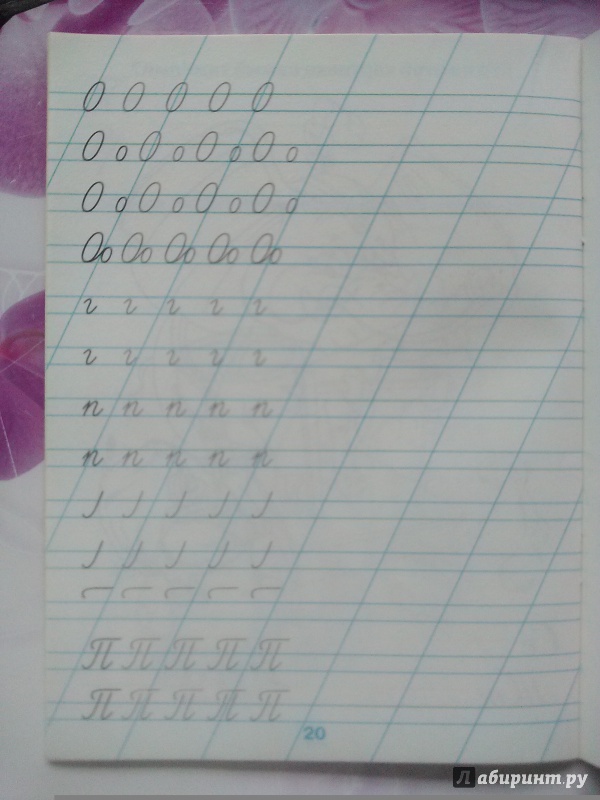 О О О О О
О о О о О о О о
О о О о О о О о
Оо Оо Оо Оо Оо
г г г г г
г г г г г
п п п п п
п п п п п
П П П П П
П П П П П
20
Лабиринт.ру